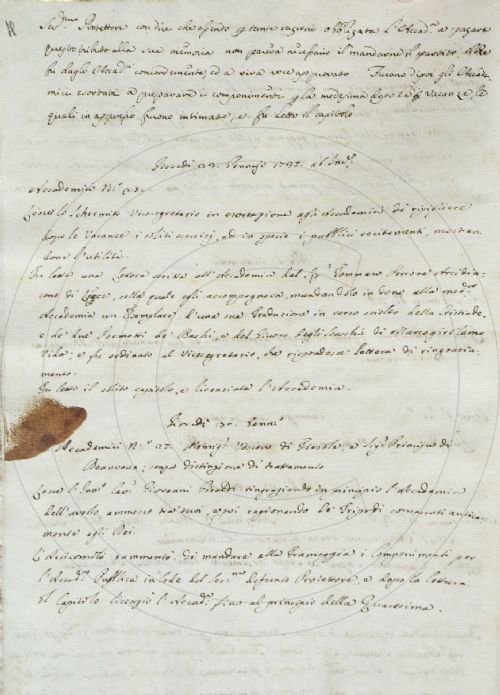 18
Ser.mo Protettore con dire che essendo p tante ragioni obbligata l'Accad.a a pagare
questo tributo alla sua memoria non pareva necessario il mandarne il partito,
fu dagli Accad.ci concordemente, ed a viva voce approvato. Furono dipoi gli Accade-
mici esortati a preparare i componimenti p la medesima dopo le Vacanze, le
quali in appresso furono intimate, e fu letto il capitolo
Giovedì 23. Gennajo 1737. al Inc.
Accademici N.o 25.
Lesse lo Schernito Vicesegretario in esortazione agli Accademici di ripigliare
dopo le Vacanze i soliti esercizj, ed in specie i pubblici recitamenti, mostran-
done l'utilità.
Fu letta una Lettera scritta all'Accademia dal Sig.r Tommaso Perrone Arcidia-
cono di Lecce, colla quale egli accompagnava, mandandolo in dono alla med.a
Accademia un Esemplare d'una sua Traduzione in verso sciolto della Cristiade,
e de' due Poemetti de' Bachi, e del Giuoco degli Scacchi di Girolamo
Vida; e fu ordinato al Vicesegretario, che rispondesse lettera di ringrazia-
mento.
Fu letto il solito capitolo, e licenziata l'Accademia.
Giovedì 30. Genn.o
Accademici N.o 27. Monsig.r Vescovo di Fiesole, e Sig.r Principe di
Beauvaux, senza distinzione di trattamento
Lesse l'Inn.o Cav. Giovanni Giraldi ringraziando in principio l'Accademia
dell'averlo ammesso tra suoi, e poi ragionando de' Tripodi consacrati antica-
mente agli Dei.
L'Arciconsolo rammentò di mandare alla Tramoggia i Componimenti per
l'Accad.a Pubblica in lode del Ser.mo defunto Protettore, e dopo la lettura
del Capitolo licenziò l'Accad.a fino al principio della Quaresima.